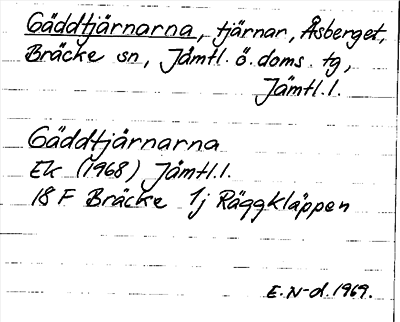 Gäddtjärnarna, tjärnar, Åsberget,
Bräcke sn, Jämtl. ö. doms. tg,
Jämtl. l.
Gäddtjärnarna
Ek (1968) Jämtl. l.
18 F Bräcke 1j Räggkläppen
E. N-d. 1969.